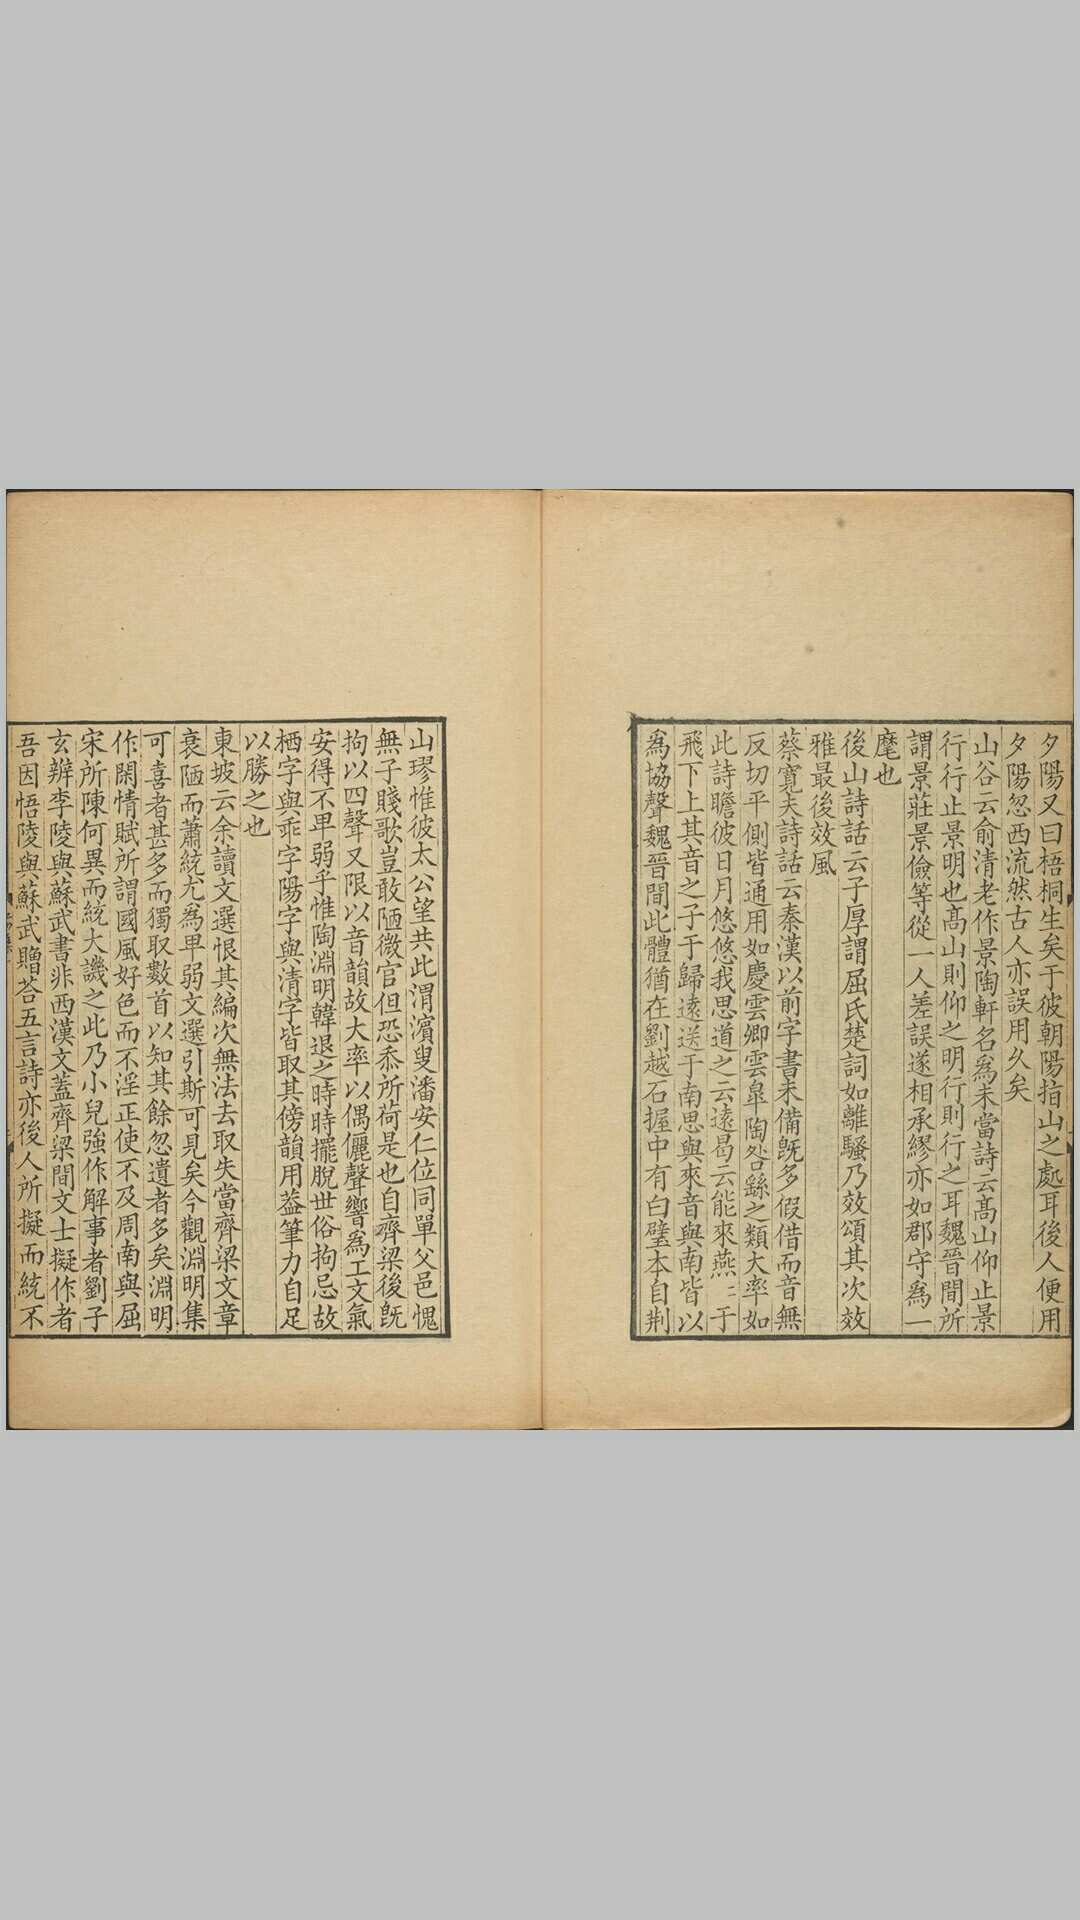 夕陽又曰梧桐生矣于彼朝陽指山之處耳後人便用
夕陽忽西流然古人亦誤用久矣
山谷云俞清老作景陶軒名爲未當詩云高山仰止景
行行止景明也高山則仰之明行則行之耳魏晉間所
謂景莊景儉等從一人差誤遂相承繆亦如郡守爲一
麾也
後山詩話云子厚謂屈氏楚詞如離騷乃效頌其次效
雅最後效風
蔡寬夫詩話云秦漢以前字書未備旣多假借而音無
反切平側皆通用如慶雲卿雲皐陶咎繇之類大率如
此詩瞻彼日月悠悠我思道之云遠曷云能來燕二于
飛下上其音之子于歸遠送于南思與來音與南皆以
爲協聲魏晉間此體猶在劉越石握中有白璧本自荆
山璆惟彼太公望共此渭濱叟潘安仁位同單父邑愧
無子賤歌豈敢陋微官但恐忝所荷是也自齊梁後旣
拘以四聲又限以音韻故大率以偶儷聲響爲工文氣
安得不卑弱乎惟陶淵明韓退之時時擺脫世俗拘忌故
栖字與乖字陽字與清字皆取其傍韻用葢筆力自足
以勝之也
東坡云余讀文選恨其編次無法去取失當齊梁文章
衰陋而蕭統尤爲卑弱文選引斯可見矣今觀淵明集
可喜者甚多而獨取數首以知其餘忽遺者多矣淵明
作閑情賦所謂國風好色而不淫正使不及周南與屈
宋所陳何異而統大譏之此乃小兒強作解事者劉子
玄辨李陵與蘇武書非西漢文蓋齊梁間文士擬作者
吾因悟陵與蘇武贈荅五言詩亦後人所擬而統不